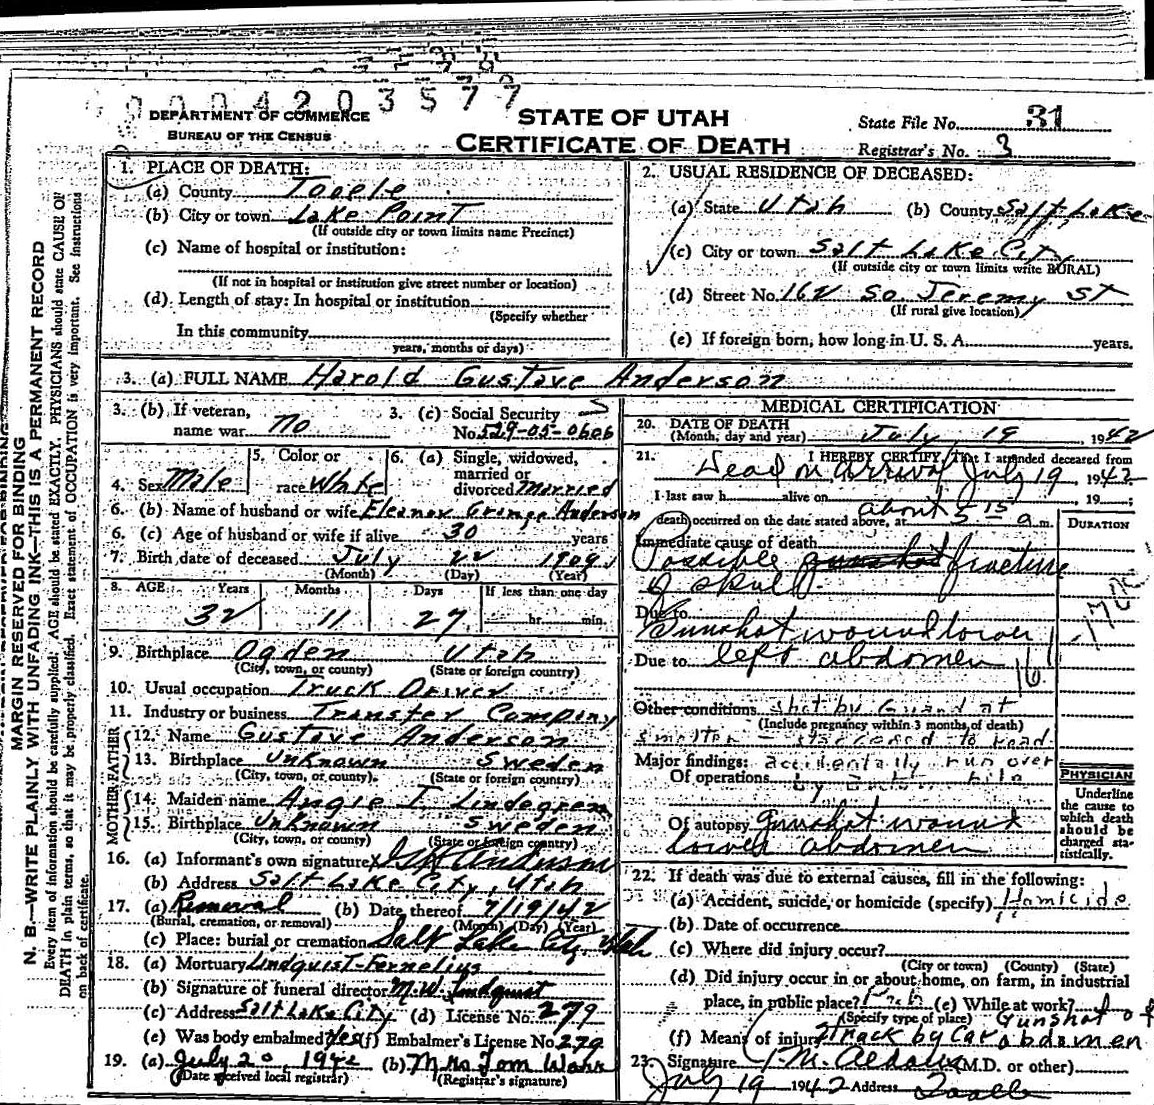 0 0 0 4 2 0 3 5 7 7
DEPARTMENT OF COMMERCE
BUREAU OF THE CENSUS
STATE OF UTAH
CERTIFICATE OF DEATH
State File No. 31
Registrar's No. 3
MARGIN RESERVED FOR BINDING
N. B.—WRITE PLAINLY WITH UNFADING INK—THIS IS A PERMANENT RECORD
Every item of information should be carefully supplied. AGE should be stated EXACTLY. PHYSICIANS should state CAUSE OF
DEATH in plain terms, so that it may be properly classified. Exact statement of OCCUPATION is very important. See instructions
on back of certificate.
1. PLACE OF DEATH:
(a) County Tooele
(b) City or town Lake Point
(If outside city or town limits name Precinct)
(c) Name of hospital or institution:
(If not in hospital or institution give street number or location)
(d) Length of stay: In hospital or institution
(Specify whether
In this community
years, months or days)
2. USUAL RESIDENCE OF DECEASED:
(a) State Utah (b) County Salt Lake
(c) City or town Salt Lake City
(If outside city or town limits write RURAL)
(d) Street No. 162 So. Jeremy St
(If rural give location)
(e) If foreign born, how long in U. S. A. years.
3. (a) FULL NAME Harold Gustave Anderson
3. (b) If veteran, name war No
3. (c) Social Security No. 529-05-0606
4. Sex Male
5. Color or race White
6. (a) Single, widowed, married or divorced Married
6. (b) Name of husband or wife Eleanor Anderson
6. (c) Age of husband or wife if alive 30 years
7. Birth date of deceased July 22 1909
(Month) (Day) (Year)
8. AGE Years Months Days If less than one day
32 11 27 hr. min.
9. Birthplace Ogden Utah
(City, town, or county) (State or foreign country)
10. Usual occupation Truck Driver
11. Industry or business Transfer Company
FATHER
12. Name Gustave Anderson
13. Birthplace Unknown Sweden
(City, town, or county) (State or foreign country)
MOTHER
14. Maiden name Angie T. Lindegren
15. Birthplace Unknown Sweden
(City, town, or county) (State or foreign country)
16. (a) Informant's own signature X Anderson
(b) Address Salt Lake City, Utah
17. (a) Removal (b) Date thereof 7/19/42
(Burial, cremation, or removal) (Month) (Day) (Year)
(c) Place: burial or cremation Salt Lake City, Utah
18. (a) Mortuary Lindquist-Fernelius
(b) Signature of funeral director M. W. Lindquist
(c) Address Salt Lake City (d) License No. 279
(e) Was body embalmed Yes (f) Embalmer's License No. 279
19. (a) July 20, 1942 (b) Mrs Tom
(Date received local registrar) (Registrar's signature)
MEDICAL CERTIFICATION
20. DATE OF DEATH
(Month, day and year) July 19, 1942
21. I HEREBY CERTIFY, That I attended deceased from
Dead on arrival July 19 1942
I last saw h alive on 19 ;
death occurred on the date stated above, at about 5 15 a m.
DURATION
Immediate cause of death
Possible gunshot fracture
of skull
Due to
Gunshot wound lower
Due to left abdomen
Other conditions shot by Guard at
(Include pregnancy within 3 months of death)
smelter — staggered to road
Major findings: accidentally run over
Of operations by
Of autopsy Gunshot wound
lower abdomen
PHYSICIAN
Underline
the cause to
which death
should be
charged sta-
tistically.
22. If death was due to external causes, fill in the following:
(a) Accident, suicide, or homicide (specify) Homicide
(b) Date of occurrence
(c) Where did injury occur?
(City or town) (County) (State)
(d) Did injury occur in or about home, on farm, in industrial
place, in public place? Pub (e) While at work?
(Specify type of place) Gunshot of
(f) Means of injury Struck by Car abdomen
23. Signature (M.D. or other)
July 19 1942 Address Tooele